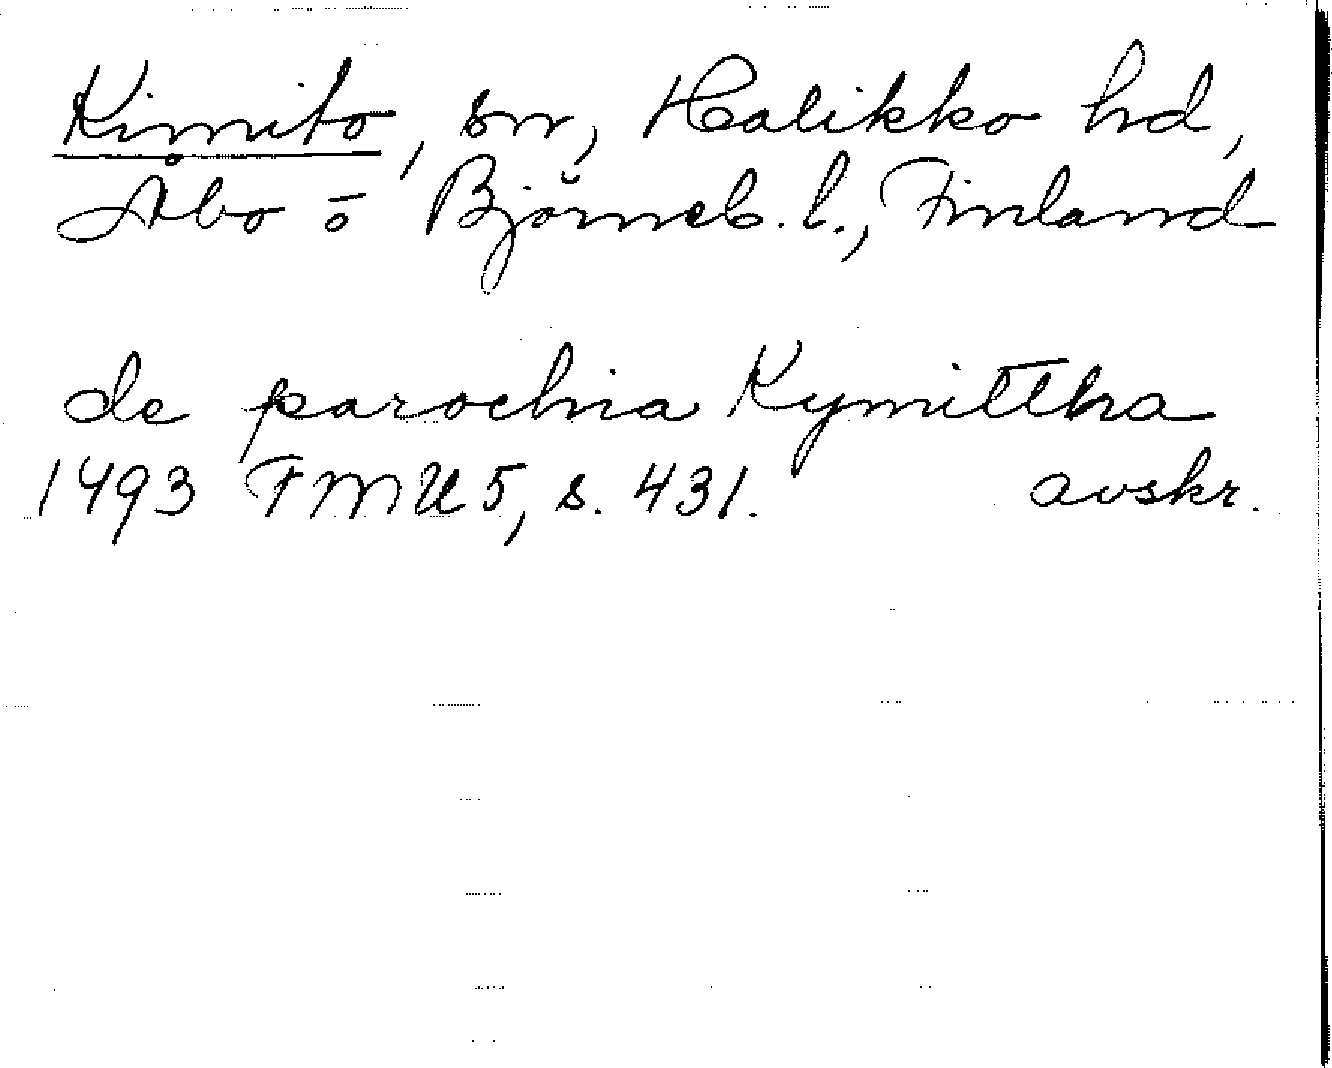 Kimito, sn, Halikko hd,
Åbo ō Björneb. l., Finland
de parochia Kymittha
1493 FMU 5, s. 431. avskr.